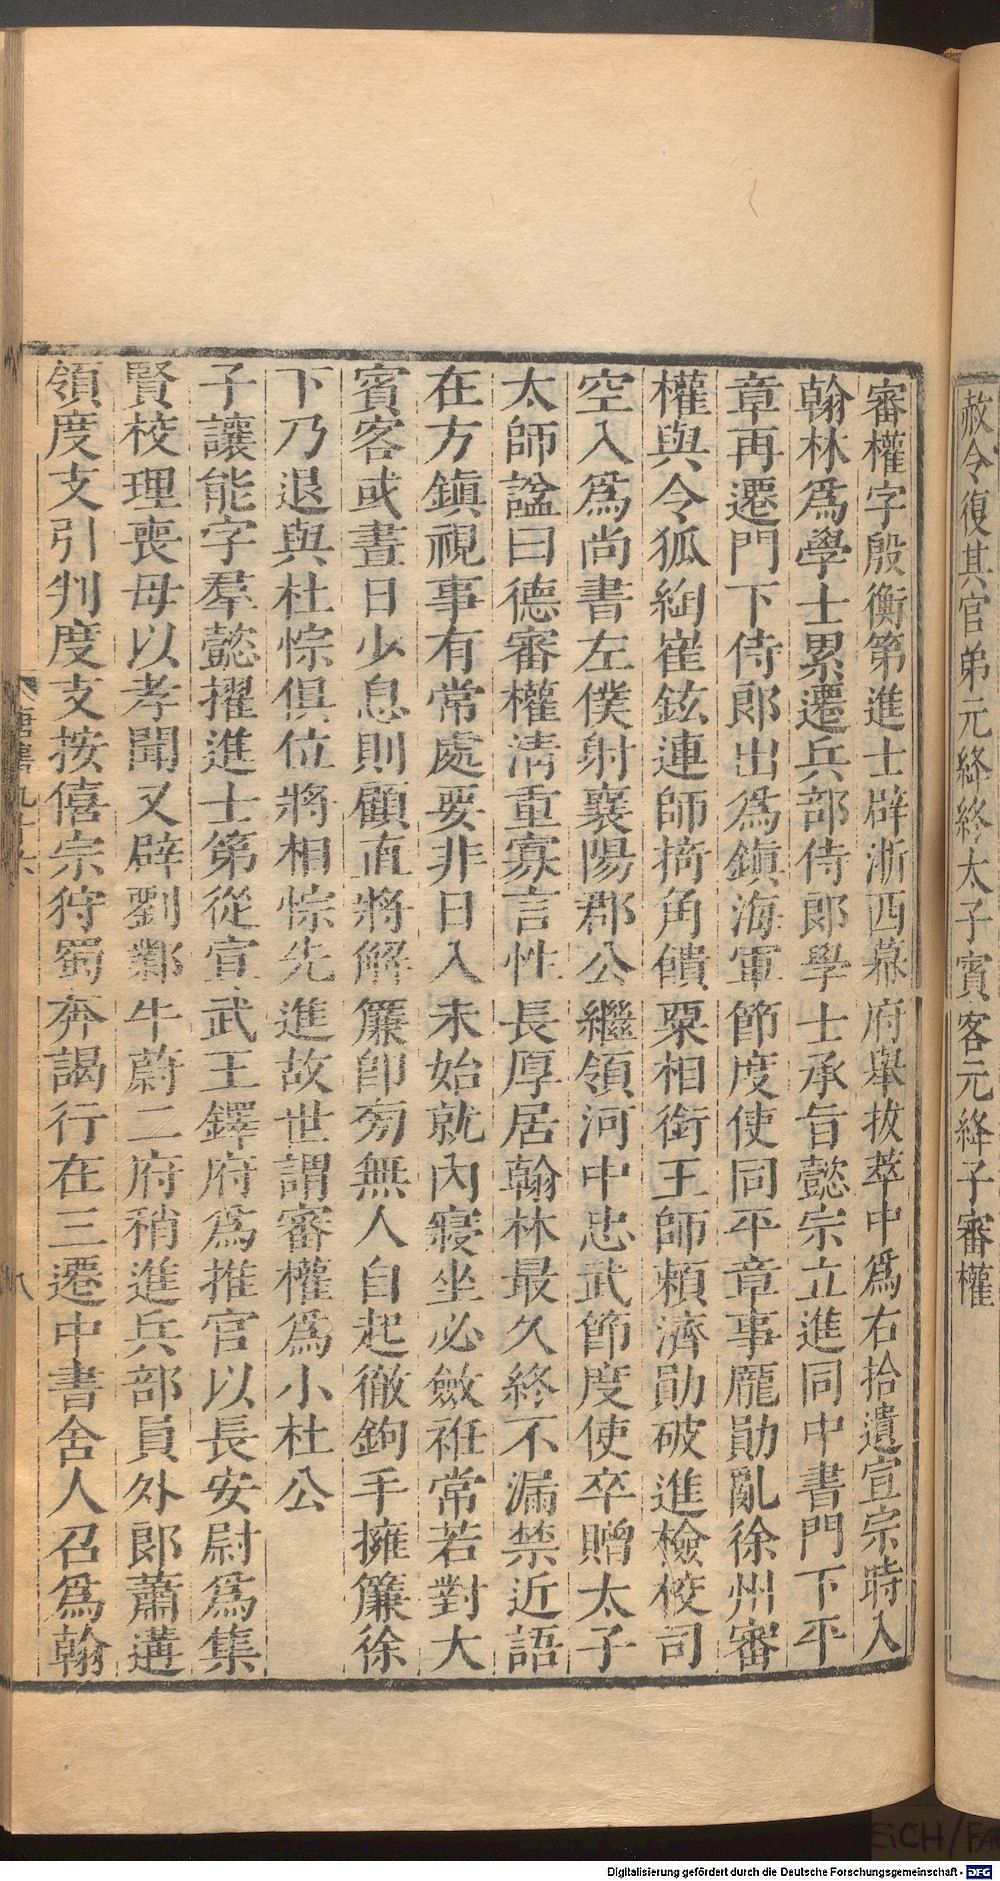 赦令復其官弟元絳終太子賓客元絳子審權
審權字殷衡第進士辟浙西幕府舉拔萃中爲右拾遺宣宗時入
翰林爲學士累遷兵部侍郎學士承旨懿宗立進同中書門下平
章再遷門下侍郎出爲鎭海軍節度使同平章事龐勛亂徐州審
權與令狐綯崔鉉連師掎角饋粟相銜王師賴濟勛破進檢校司
空入爲尚書左僕射襄陽郡公繼領河中忠武節度使卒贈太子
太師諡曰德審權淸重寡言性長厚居翰林最久終不漏禁近語
在方鎭視事有常處要非日入未始就內寢坐必斂袵常若對大
賓客或晝日少息則顧直將解簾卽旁無人自起徹鉤手擁簾徐
下乃退與杜悰俱位將相悰先進故世謂審權爲小杜公
子讓能字羣懿擢進士第從宣武王鐸府爲推官以長安尉爲集
賢校理喪母以孝聞又辟劉鄴牛蔚二府稍進兵部員外郎蕭遘
領度支引判度支按僖宗狩蜀奔謁行在三遷中書舍人召爲翰
唐書九十六
八
Digitalisierung gefördert durch die Deutsche Forschungsgemeinschaft - DFG